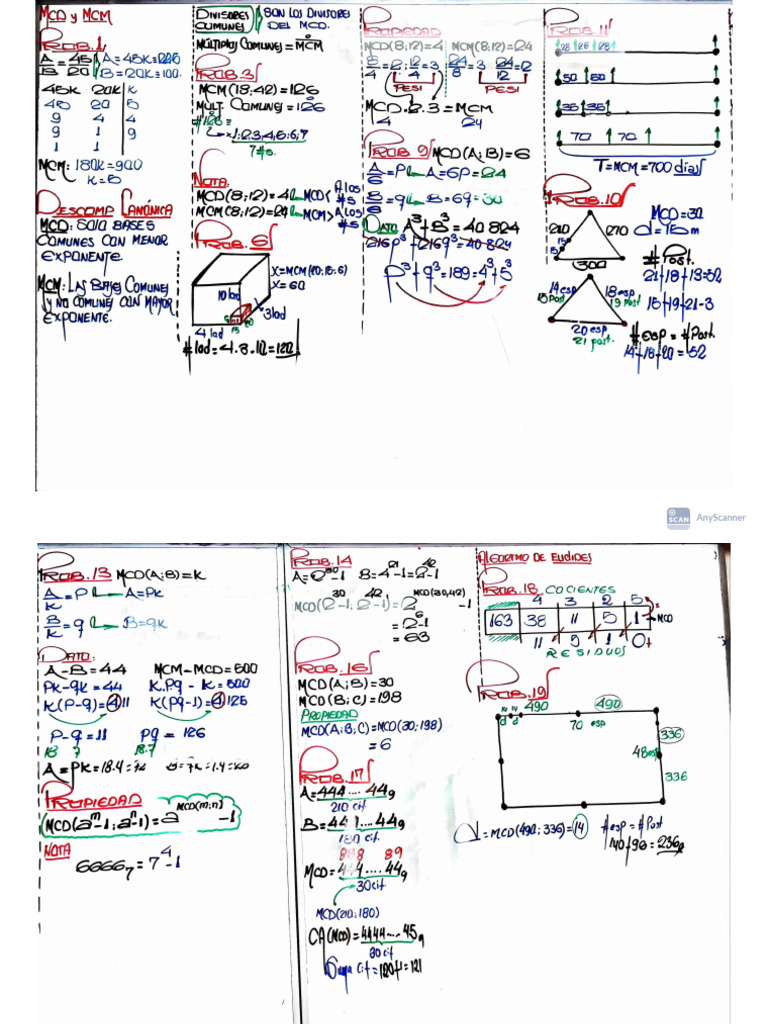 MCD y MCM
PROB.1
A = 45K = 225
B 20 B = 20K = 100.
45K 20K K
45 20 5
9 4 4
9 1 9
1 1
MCM: 180K = 900
K = 5
DESCOMP. CANÓNICA
MCD: SOLO BASES
COMUNES CON MENOR
EXPONENTE.
MCM: LAS BASES COMUNES
Y NO COMUNES CON MAYOR
EXPONENTE.
DIVISORES COMUNES SON LOS DIVISORES
DEL MCD.
MÚLTIPLOS COMUNES = MCM
PROB.3
MCM(18;42) = 126
MULT. COMUNES = 126
#126 =
x 1;2;3;4;5;6;7
7 #s.
NOTA:
MCD(8;12) = 4 MCD < A LOS #S
MCM(8;12) = 24 MCM > A LOS #S
PROB. 6
X = MCM(20;15;6)
X = 60
10 lad
3 lad
4 lad
# lad = 4.3.10 = 120
PROPIEDAD
MCD(8;12) = 4 MCM(8;12) = 24
8/4 = 2; 12/4 = 3 24/8 = 3 24/12 = 2
PESI PESI
MCD.2.3 = MCM
4 24
PROB. 9 MCD(A;B) = 6
A/6 = P A = 6P = 24
B/6 = q B = 6q = 30
DATO A³ + B³ = 40 824
216P³ + 216q³ = 40 824
P³ + q³ = 189 = 4³ + 5³
PROB. 11
28 28 28
50 50
35 35
70 70
T = MCM = 700 días
PROB. 10
MCD = 30
d = 15m
210 270
15
15
300
# Post.
21+18+13=52
15+19+21-3
14 esp
15 post
18 esp
19 post
20 esp
21 post.
# esp = # Post.
14+18+20 = 52
SCAN AnyScanner
PROB. 13 MCD(A;B) = K
A/K = P A = PK
B/K = q B = qK
DATO:
A - B = 44 MCM - MCD = 500
PK - qK = 44 K.Pq - K = 500
K(P-q) = 4 11 K(Pq-1) = 4 125
P-q = 11 Pq = 126
18 7 18.7
A = PK = 18.4 = 72
PROPIEDAD
MCD(a^m-1; a^n-1) = a^MCD(m;n) - 1
NOTA
6666₇ = 7⁴-1
PROB. 14
B = 4²¹-1 = 2⁴²-1
MCD(2³⁰-1; 2⁴²-1) = 2^MCD(30;42) - 1
= 2⁶-1
= 63
PROB. 16
MCD(A;B) = 30
MCD(B;C) = 198
PROPIEDAD
MCD(A;B;C) = MCD(30;198)
= 6
PROB. 17
A = 444....44₉
210 cif
B = 444....44₉
180 cif
888 89
MCD = 444....44₉
30 cif
MCD(210;180)
CA(MCD) = 4444....45₉
30 cif
Suma cif = 120+1 = 121
ALGORITMO DE EUCLIDES
PROB. 18 COCIENTES
4 3 2 5
163 38 11 5 1 MCD
11 5 1 0
RESIDUOS
PROB. 19
14 14 490 490
d d 70 esp
336
48 esp
336
d = MCD(490;336) = 14
# esp = # Post
140+96 = 236